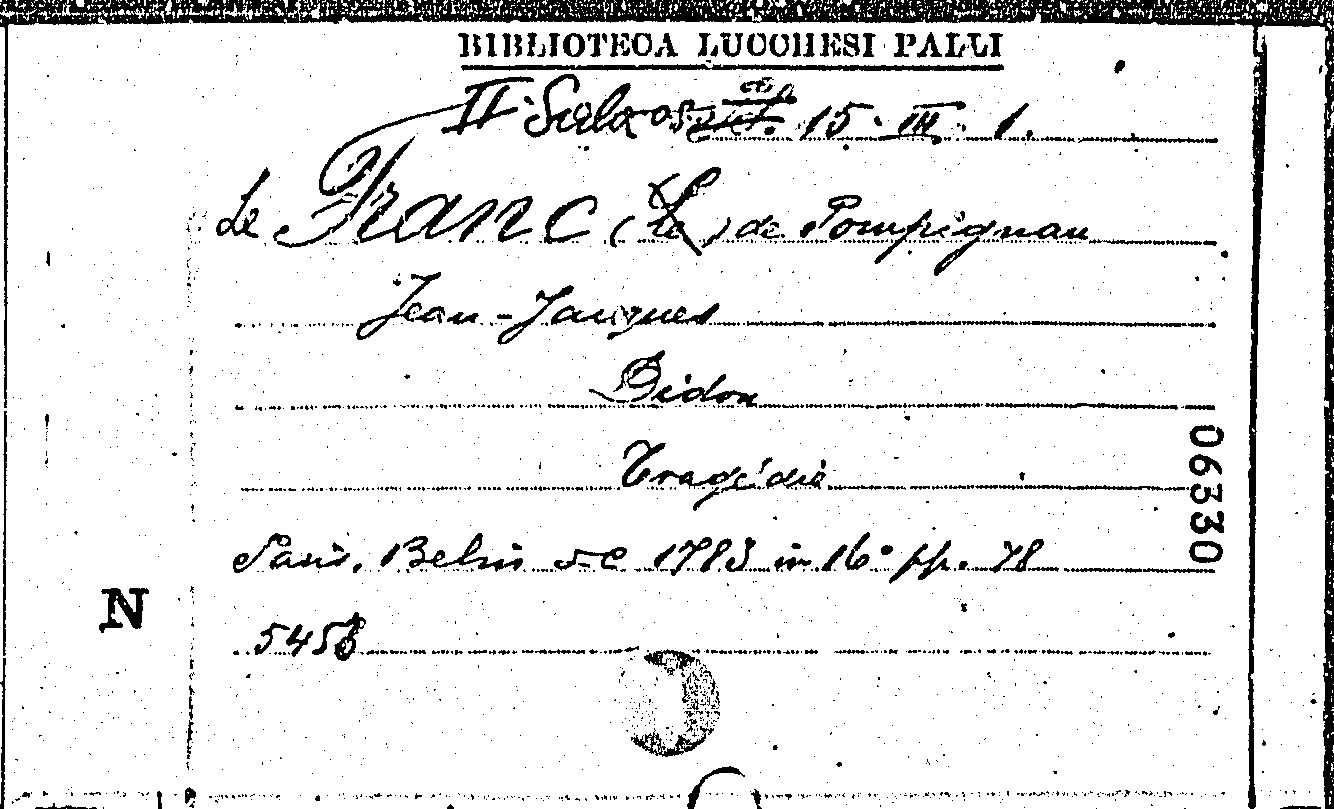 BIBLIOTECA LUCCHESI PALLI
II Sala 15. III. 1.
Le Franc (Le) de Pompignan
Jean-Jacques
Didon
Tragédie
Paris, Belin 1783 in 16° pp. 78
5456
N
06330